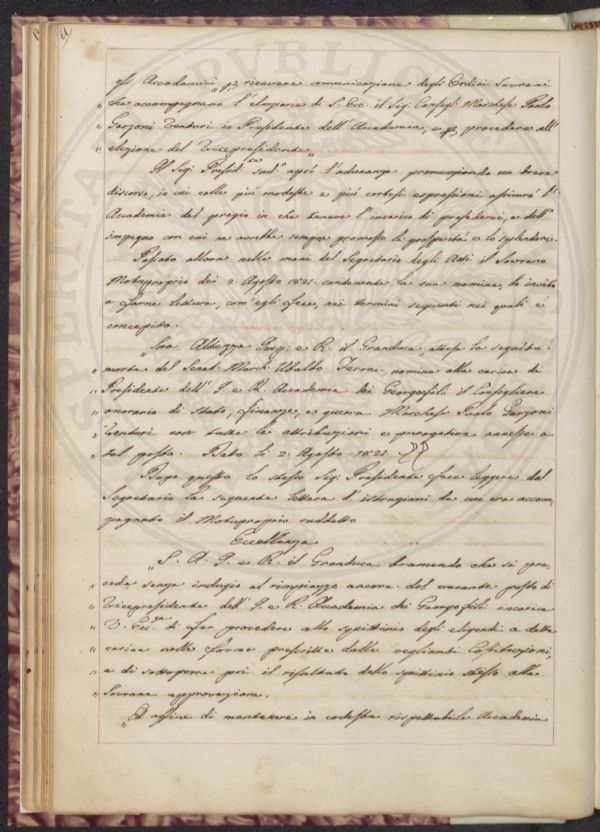 gli Accademici "p. ricevere comunicazione degli Ordini Sovrani
" che accompagnano l'elezione di S. Ecc. il Sig. Consigl. Marchese Paolo
" Garzoni Venturi in Presidente dell'Accademia, e p. procedere all'
" elezione del Vicepresidente„
Il Sig. Presid.te sud.o aprì l'adunanza pronunziando un breve
discorso, in cui colle più modeste e più cortesi espressioni assicurò l'
Accademia del pregio in che teneva l'incarico di presederla, e dell'
impegno con cui ne avrebbe sempre promosso la prosperità e lo splendore.
Passato allora nelle mani del Segretario degli Atti il Sovrano
Motuproprio dei 2 Agosto 1821. contenente la sua nomina, lo invitò
a farne lettura, com'egli fece, nei termini seguenti nei quali è
concepito.
"Sua Altezza Imp. e R. il Granduca attesa la seguita
" morte del Senat. March. Ubaldo Feroni, nomina alla carica di
" Presidente dell'I. e R. Accademia dei Georgofili il Consigliere
" onorario di Stato, Finanze, e guerra Marchese Paolo Garzoni
" Venturi con tutte le attribuzioni e prerogative annesse a
" tal posto. Dato li 2. Agosto 1821.
Dopo questo lo stesso Sig. Presidente fece leggere dal
Segretario la seguente lettera d'istruzioni da cui era accom,
pagnato il Motuproprio suddetto
Eccellenza
"S. A. I. e R. il Granduca bramando che si pro,
" ceda senza indugio al rimpiazzo ancora del vacante posto di
" Vicepresidente dell'I. e R. Accademia dei Georgofili incarica
" V. Ecc.za di far procedere allo squittinio degli eligendi a detta
" carica nelle forme prescritte dalle veglianti Costituzioni,
" e di sottoporre poi il resultato dello squittinio stesso alla
" Sovrana approvazione.
"Ed affine di mantenere in codesta rispettabile Accademia